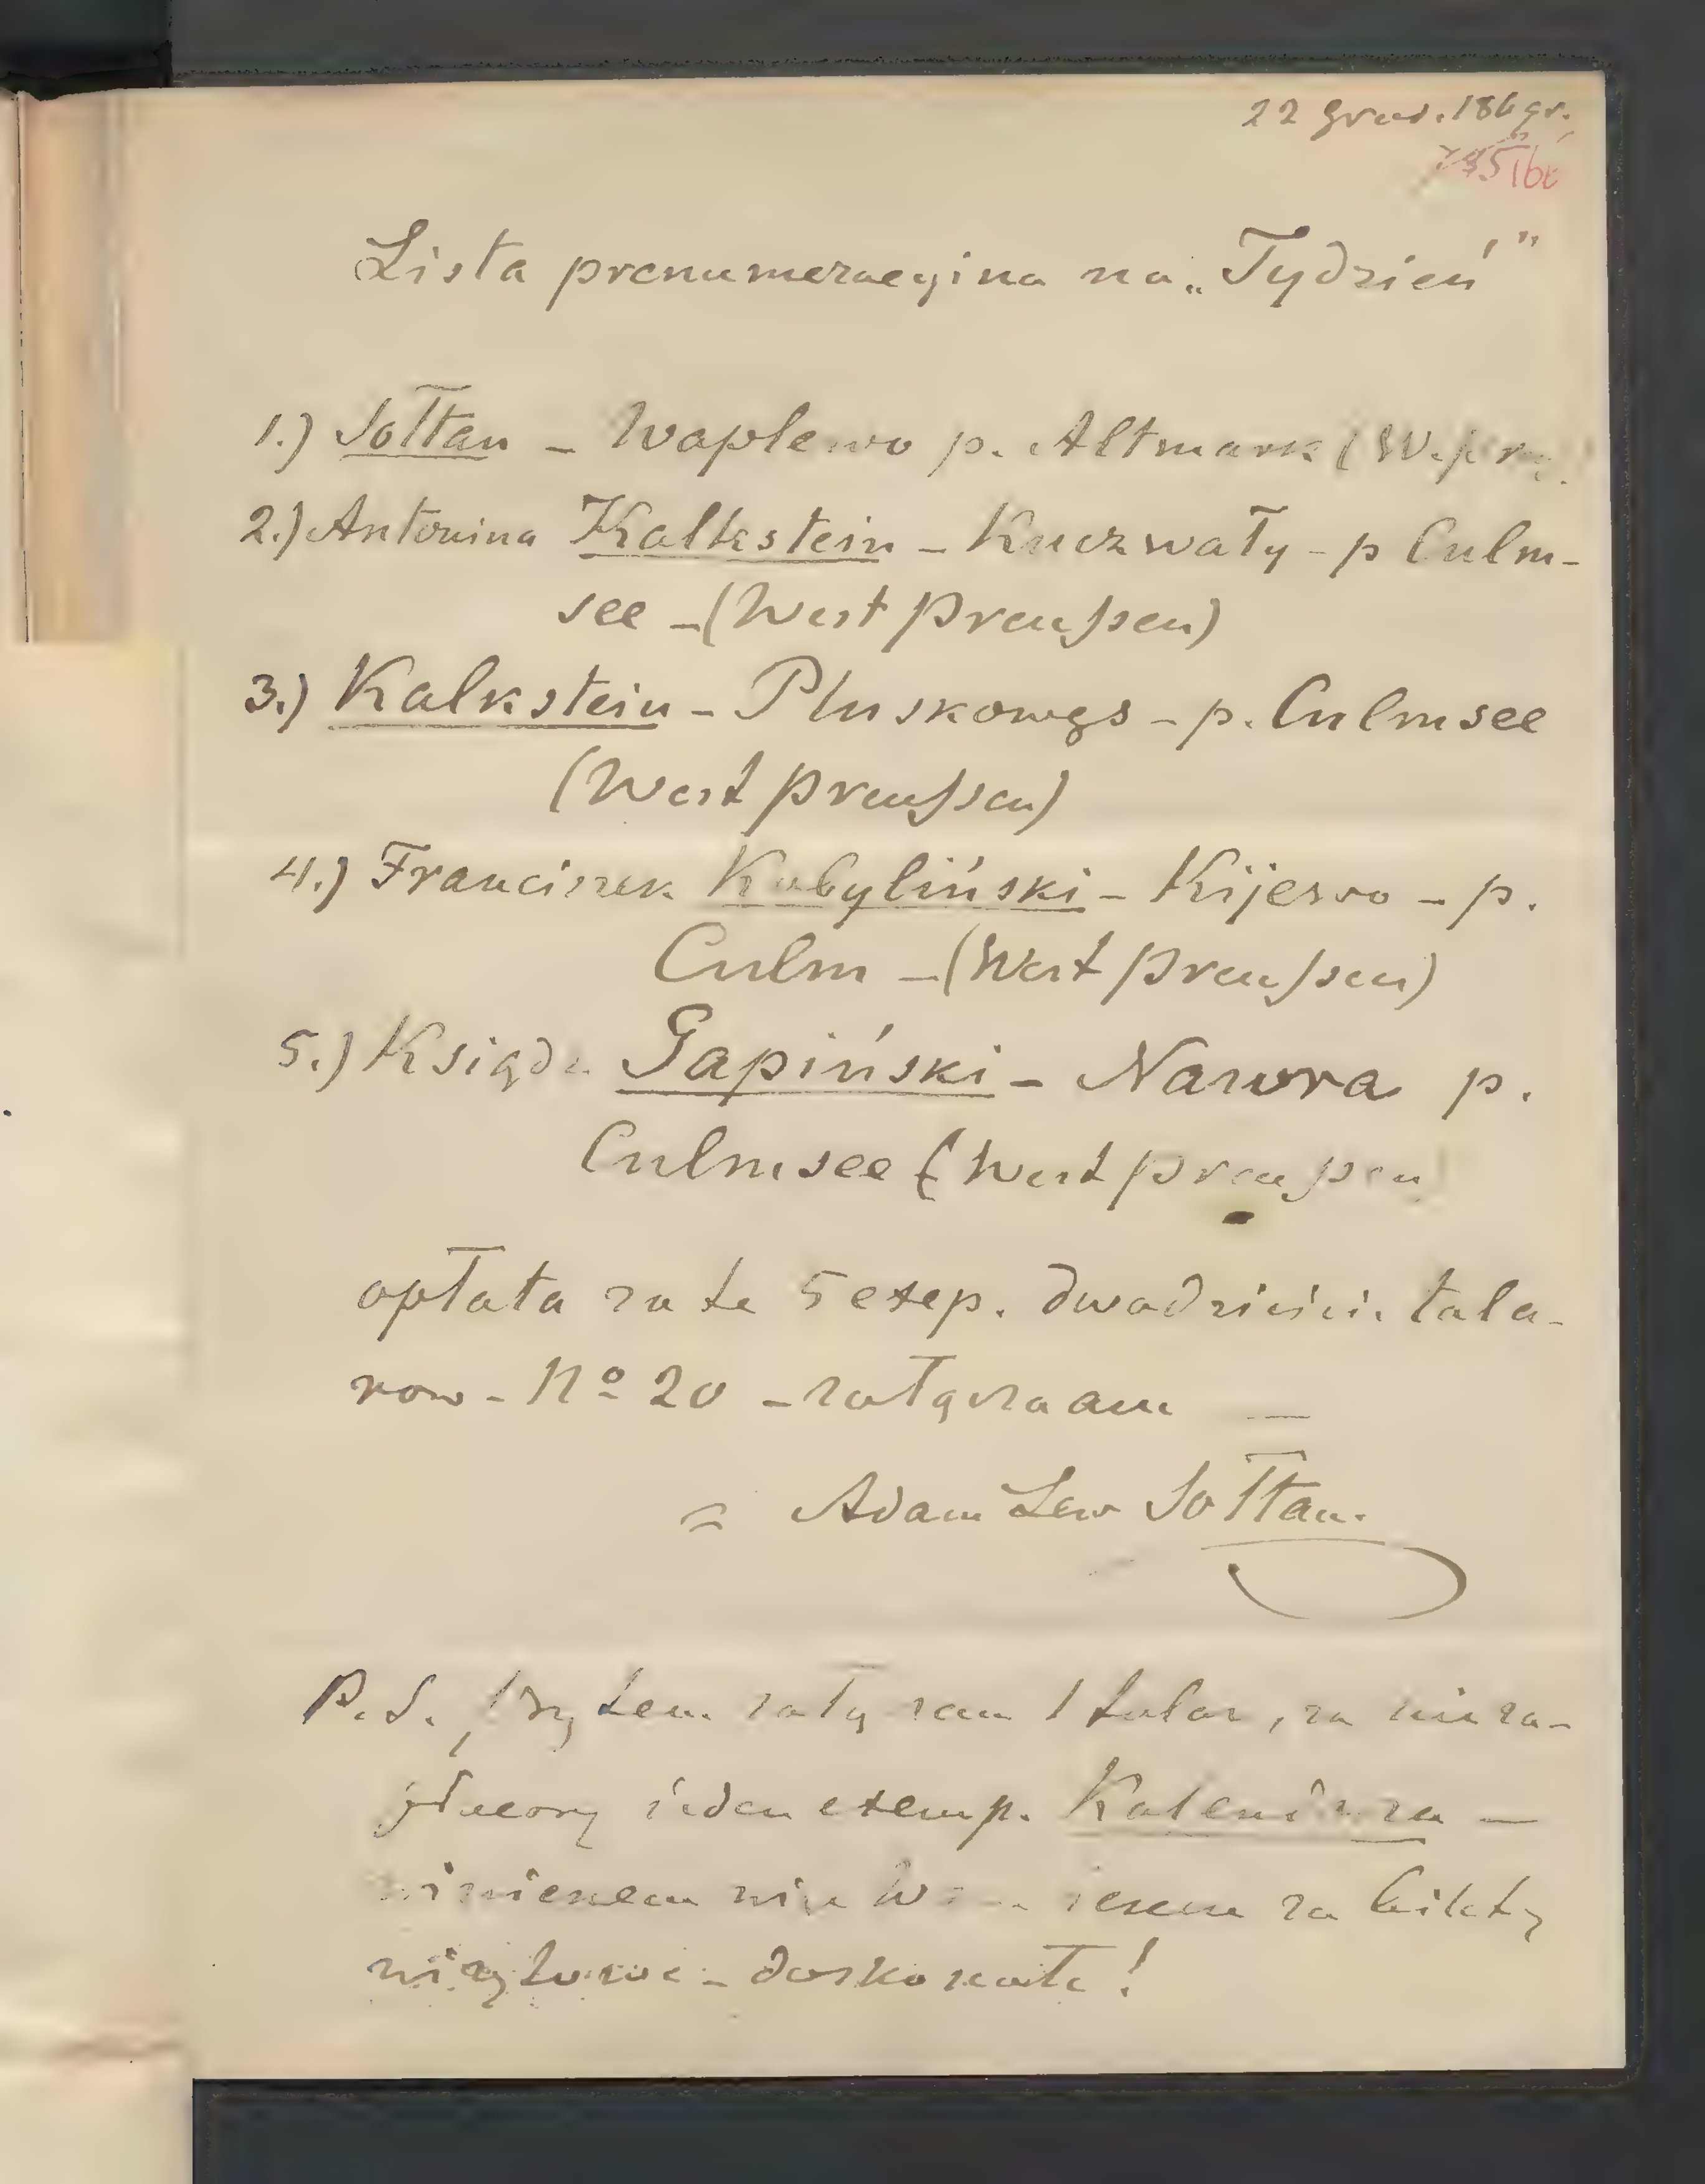 22 Grud. 1869 r.
166
Lista prenumeracyjna na „Tydzień"
1.) Sołtan – Waplewo p. Altmark (W.pr.
2.) Antonina Kalkstein – Kuczwały – p Culm-
see – (West Preußen)
3.) Kalkstein – Pluskowęs – p. Culmsee
(West Preußen)
4.) Franciszek Kobyliński – Kijewo – p.
Culm – (West Preußen)
5.) Ksiądz Gapiński – Nawra p.
Culmsee (West Preußen)
opłata za te 5 exep. dwadzieścia tala-
row – No 20 – załączam —
Adam Lew Sołtan.
P.S. Przytem załączam 1 talar, za nieza-
płacony ieden exemp. Kalendarza —
za bilety
wizytowe – doskonałe!